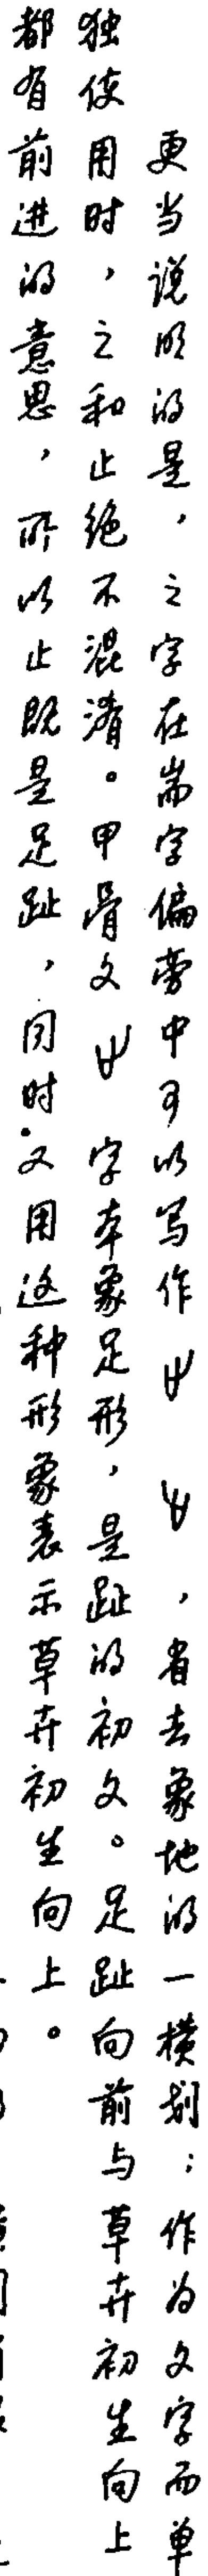 更当说明的是，之字在耑字偏旁中可以写作　，省去象地的一横划；作为文字而单
独使用时，之和止绝不混淆。甲骨文　字本象足形，是趾的初文。足趾向前与草卉初生向上
都有前进的意思，所以止既是足趾，同时又用这种形象表示草卉初生向上。